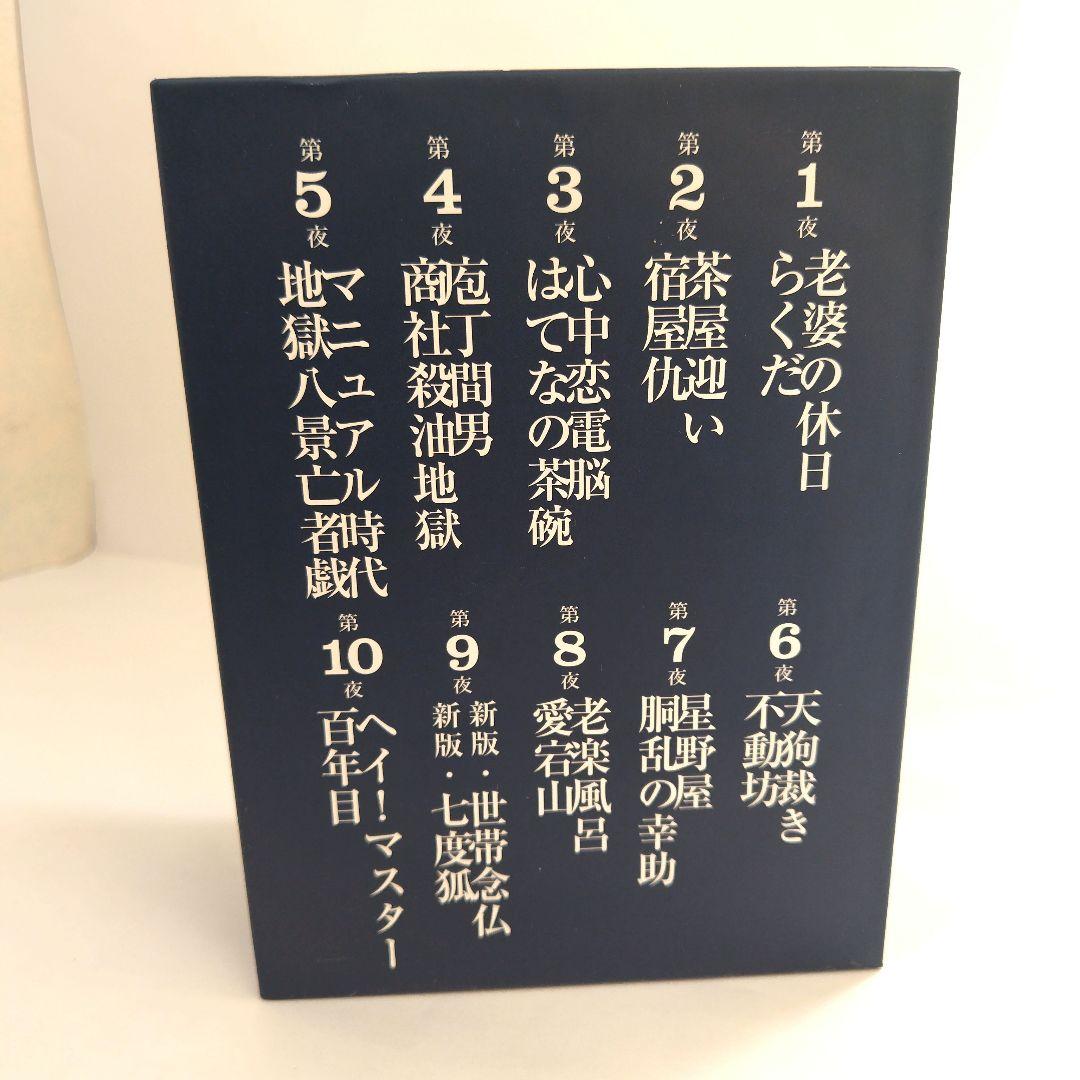 第1夜
老婆の休日
らくだ
第2夜
茶屋迎い
宿屋仇
第3夜
心中恋電脳
はてなの茶碗
第4夜
庖丁間男
商社殺油地獄
第5夜
マニュアル時代
地獄八景亡者戯
第6夜
天狗裁き
不動坊
第7夜
星野屋
胴乱の幸助
第8夜
老楽風呂
愛宕山
第9夜
新版・世帯念仏
新版・七度狐
第10夜
ヘイ!マスター
百年目